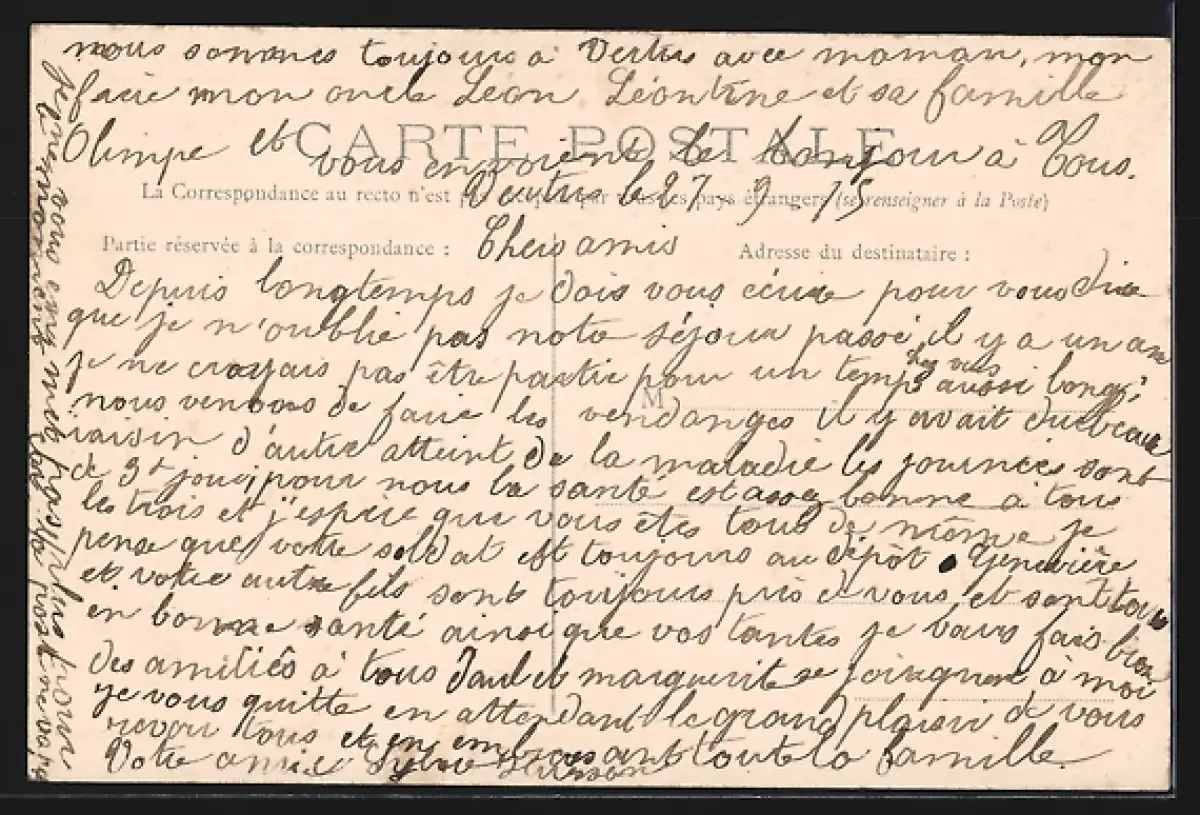 nous sommes toujours à Vertus avec maman, mon
frère mon oncle Léon Léontine et sa famille
CARTE POSTALE
Olimpe et vous envoient le bonjour à Tous.
La Correspondance au recto n'est pas par tous les pays étrangers (se renseigner à la Poste)
Vertus le 27 9 15
Partie réservée à la correspondance :
Chers amis
Adresse du destinataire :
Depuis longtemps je dois vous écrire pour vous dire
que je n'oublie pas notre séjour passé il y a un an
je ne croyais pas être partie pour un temps aussi long
M
nous venons de faire les vendanges il y avait du beau
raisin d'autre atteint de la maladie les journées sont
de 3f pour nous la santé est assez bonne à tous
les trois et j'espère que vous êtes tous de même je
pense que votre soldat est toujours au dépôt Genevière
et votre autre fils sont toujours près de vous et sont tous
en bonne santé ainsi que vos tantes je vous fais bien
des amitiés à tous Paul et marguerite se joignent à moi
je vous quitte en attendant le grand plaisir de vous
revoir tous et en embrassant toute la famille.
Votre amie Sylvie